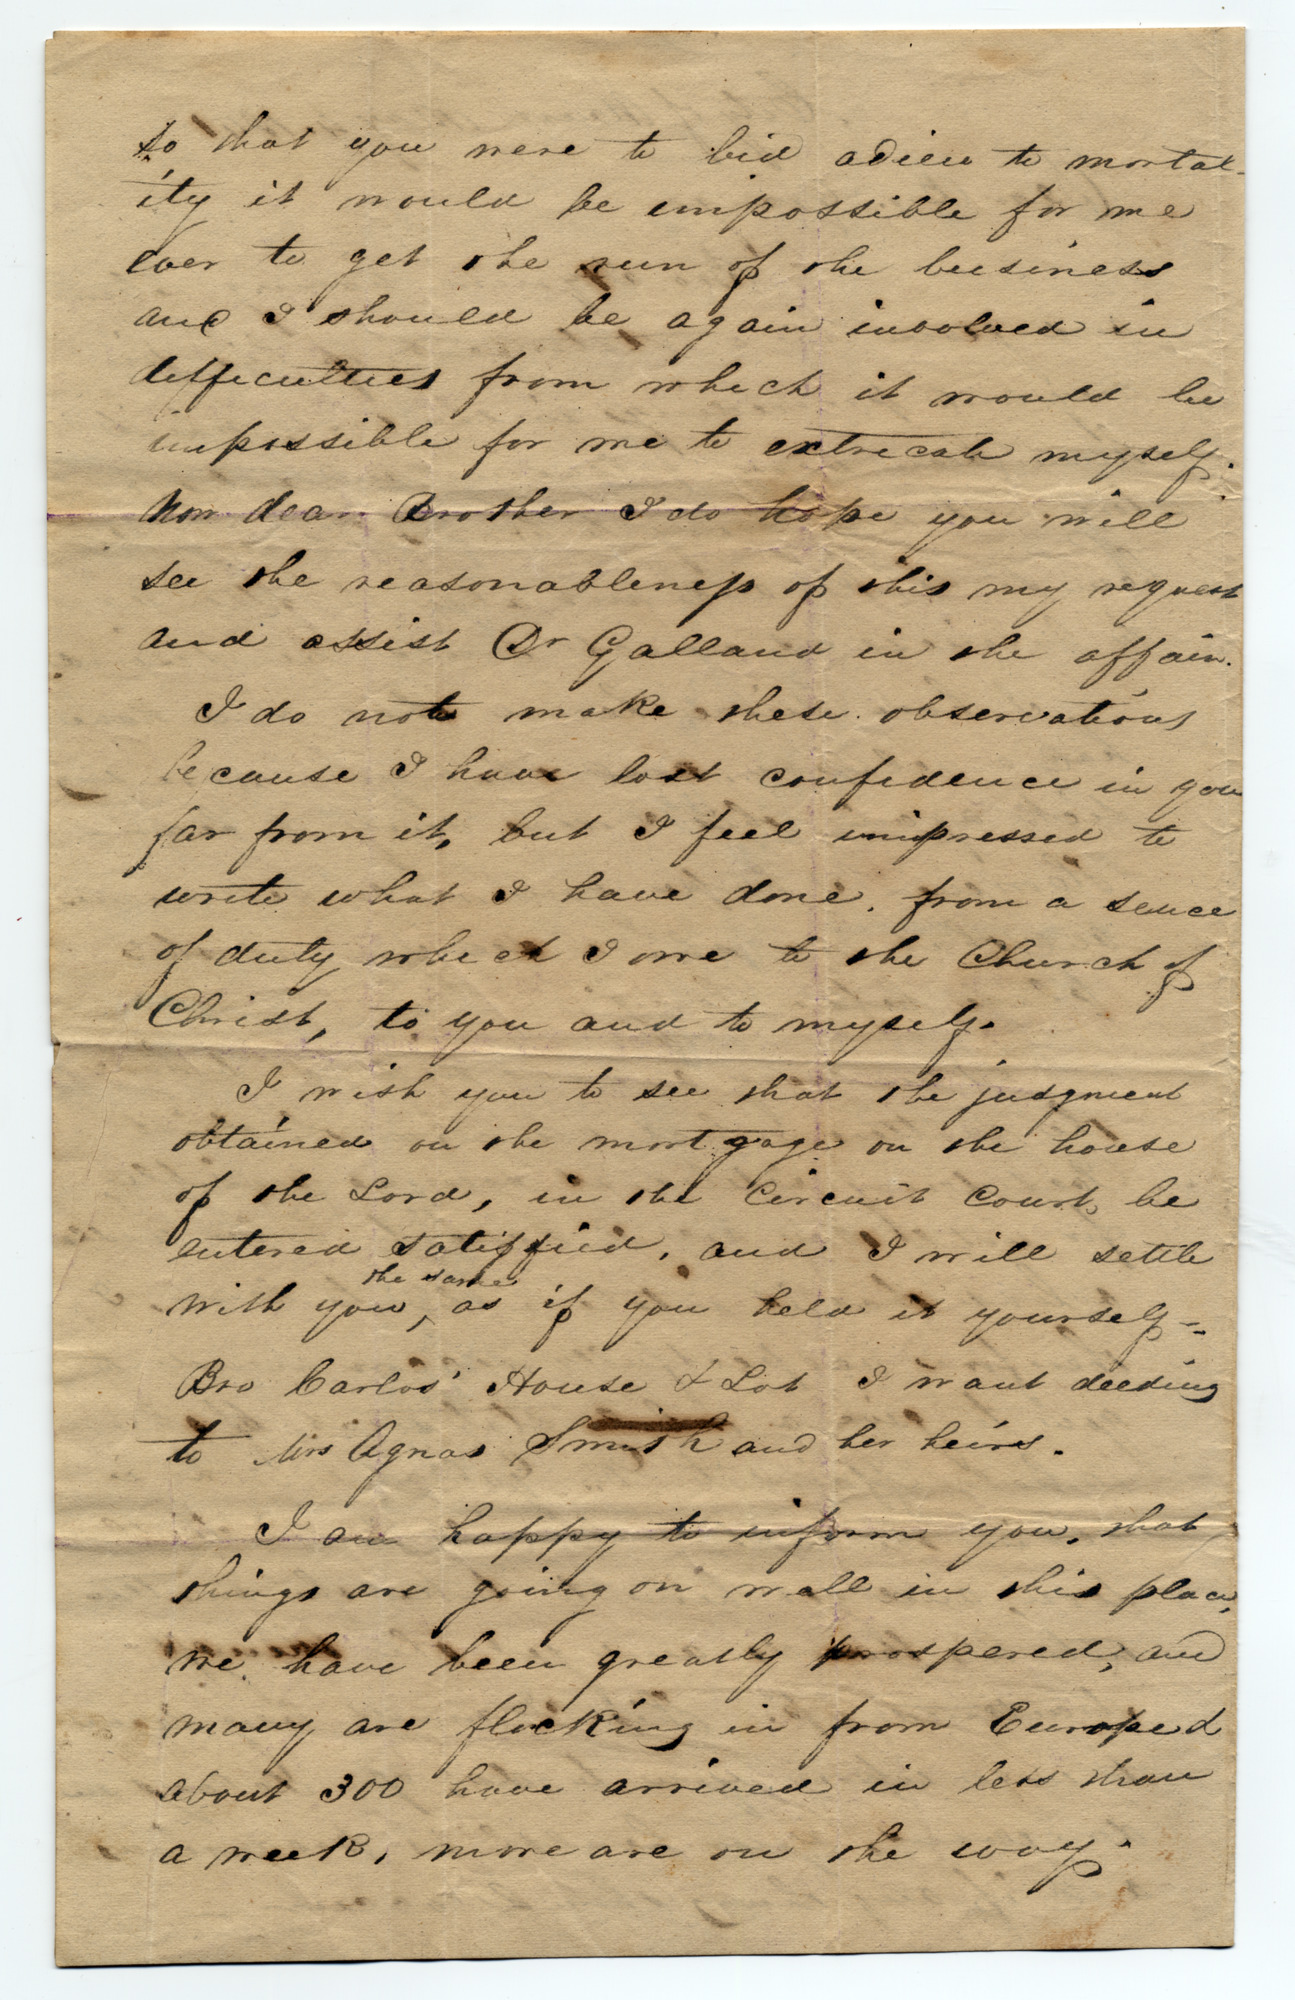 so that you were to bid adieu to mortal-
ity it would be impossible for me
ever to get the run of the business
and I should be again involved in
difficulties from which it would be
impossible for me to extricate myself.
Now dear Brother I do hope you will
see the reasonableness of this my request
and assist Dr Galland in the affair.
I do not make these observations
because I have lost confidence in you
far from it, but I feel impressed to
write what I have done. from a sence
of duty which I owe to the Church of
Christ, to you and to myself.
I wish you to see that the judgment
obtained on the mortgage on the house
of the Lord, in the Circuit Court, be
entered satisfied, and I will settle
the same
with you, as if you held it yourself-
Bro Carlos' House & Lot I want deeding
to Mrs Agnas Smith and her heirs.
I am happy to inform you, that
things are going on well in this place,
we have been greatly prospered, and
many are flocking in from Europe &
about 300 have arrived in less than
a week, more are on the way.